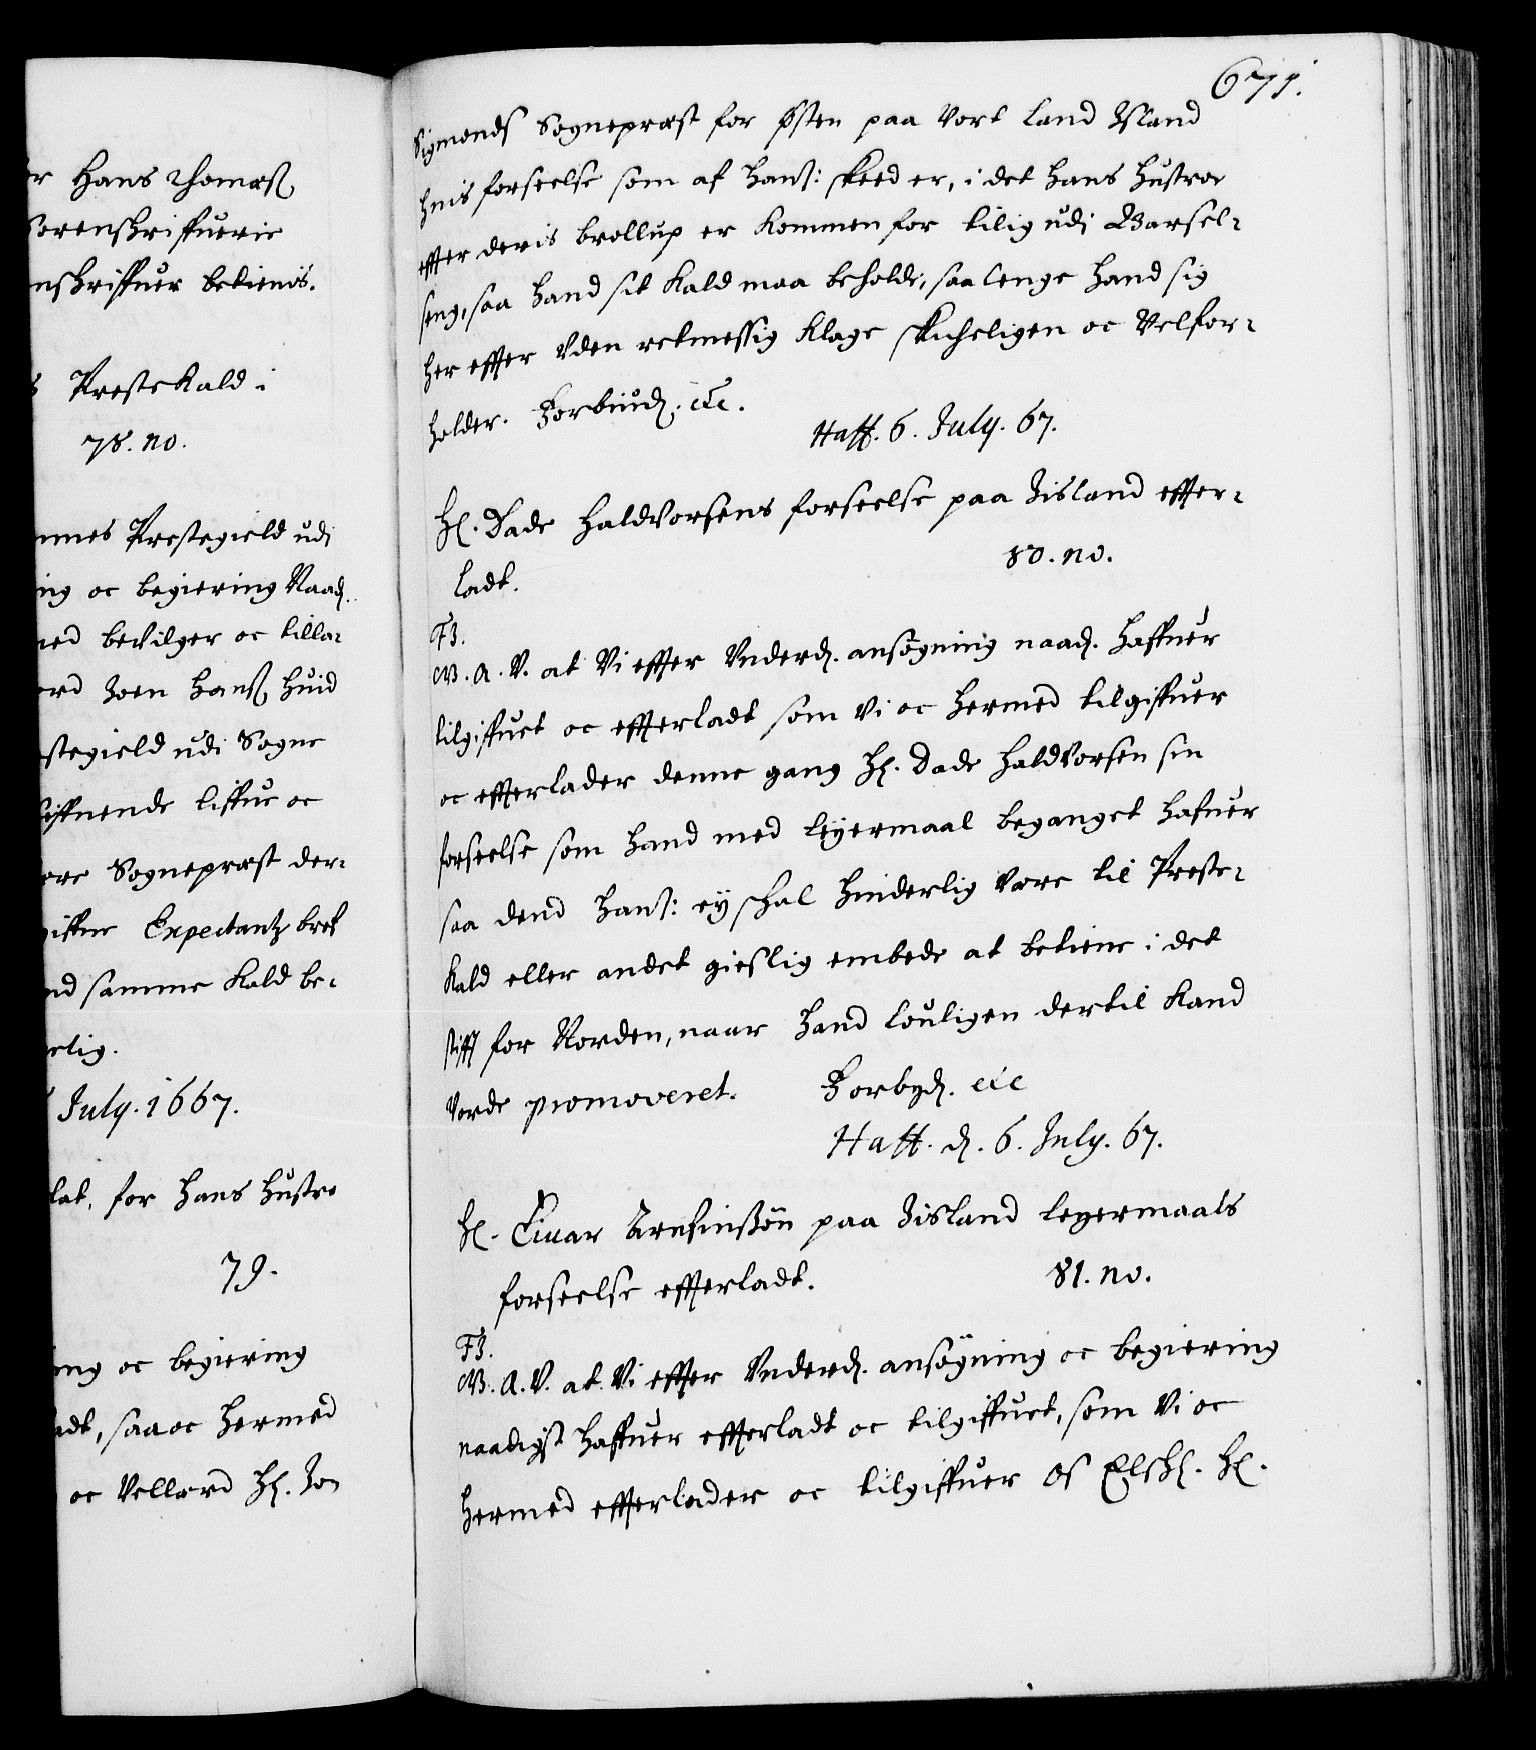 er Hans Thomæs.
Sorenskriffuerie
nskriffuer betienis.
s Prestekald i
78. no.
nnes Prestegield udi
ing oc begiering Naad.
med bevilger oc tilla-
ord Joen Hans. Huid
stegield udi Sogne
liffuende Liffue oc
ere Sogneprest der-
giffne Expectantz bref
nd samme Kald be-
elig.
July. 1667.
lat, for Hans Hustro
79.
ing oc begiering
adt, saa oc hermed
oc Vellærd H. Jo-
671.
Sigmonds Sogneprest for østen paa Vort Land Island
huis forseelse som af hans: skeed er, i det hans Hustroe
effter deris brøllup er kommen for tilig udi Barsel-
seng, saa hand sit Kald maa beholde, saa lenge hand sig
her effter Vden retmessig Klage skicheligen oc Velfor-
holder. Forbiud. etc.
Haff. 6. July. 67.
H. Dade Haldvorsens forseelse paa Iisland effter-
ladt.
80. no.
F3.
W. A. V. at Vi effter Vnderd. ansøgning naad. haffuer
tilgiffuet oc effterladt som Vi oc hermed tilgiffuer
oc effterlader denne gang H. Dade Haldvorsen sin
forseelse som hand med leyermaal beganget hafuer
saa dend hans: ey schal hinderlig Være til Preste-
Kald eller andet gieslig embede at betiene i det
stifft for Norden, naar hand louligen dertil kand
Vorde promoveret. Forbyd. etc
Haff. d. 6. July. 67.
H. Einar Arnfinsøn paa Iisland legermaals
forseelse effterladt.
81. no.
F3.
W. A. V. at Vi effter Vnderd. ansøgning oc begiering
naadigst haffuer effterladt oc tilgiffuet, som Vi oc
hermed effterlader oc tilgiffuer os Elskl. H.